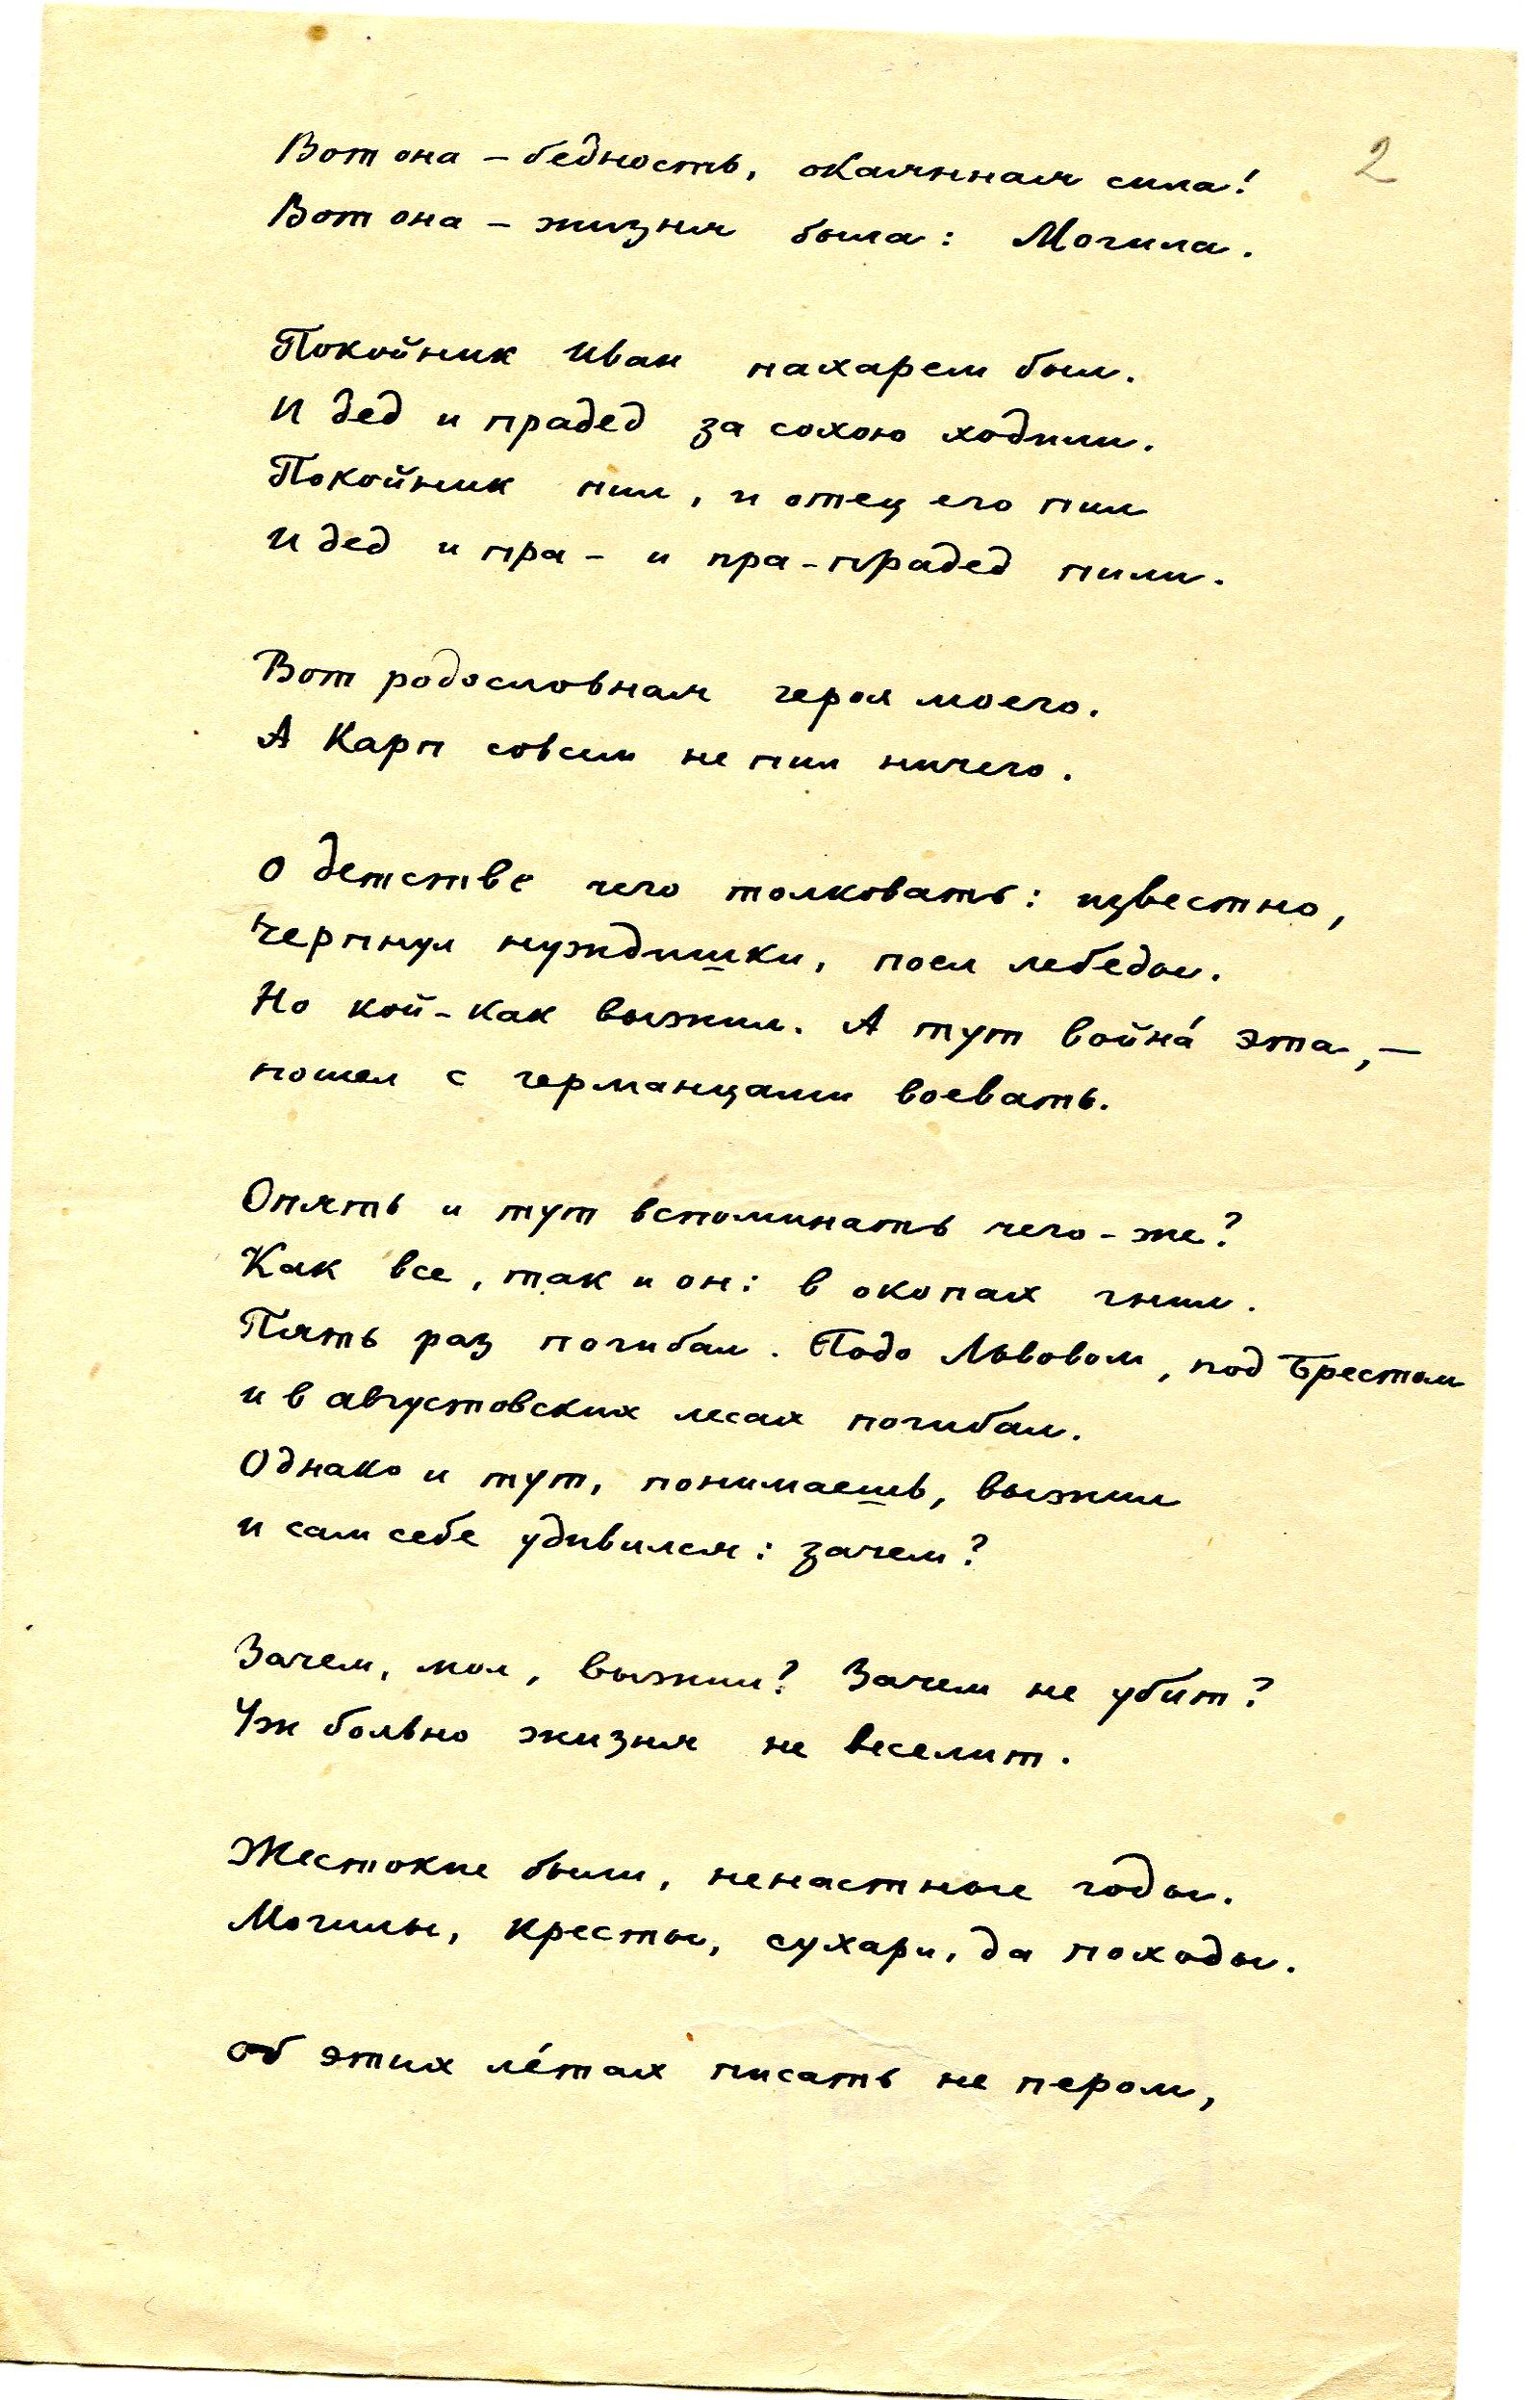 2
Вот она – бедность, окаянная сила!
Вот она – жизня была: Могила.
Покойник Иван пахарем был.
И дед и прадед за сохою ходили.
Покойник пил, и отец его пил
И дед и пра- и пра-прадед пили.
Вот родословная героя моего.
А Карп совсем не пил ничего.
О детстве чего толковать: известно,
черпнул нуждишки, поел лебеды.
Но кой-как выжил. А тут война́ эта, –
пошел с германцами воевать.
Опять и тут вспоминать чего-же?
Как все, так и он: в окопах гнил.
Пять раз погибал. Подо Львовом, под Брестом
и в августовских лесах погибал.
Однако и тут, понимаешь, выжил
и сам себе удивился: зачем?
Зачем, мол, выжил? Зачем не убит?
Уж больно жизня не веселит.
Жестокие были, ненастные годы.
Могилы, кресты, сухари, да походы.
Об этих ле́тах писать не пером,